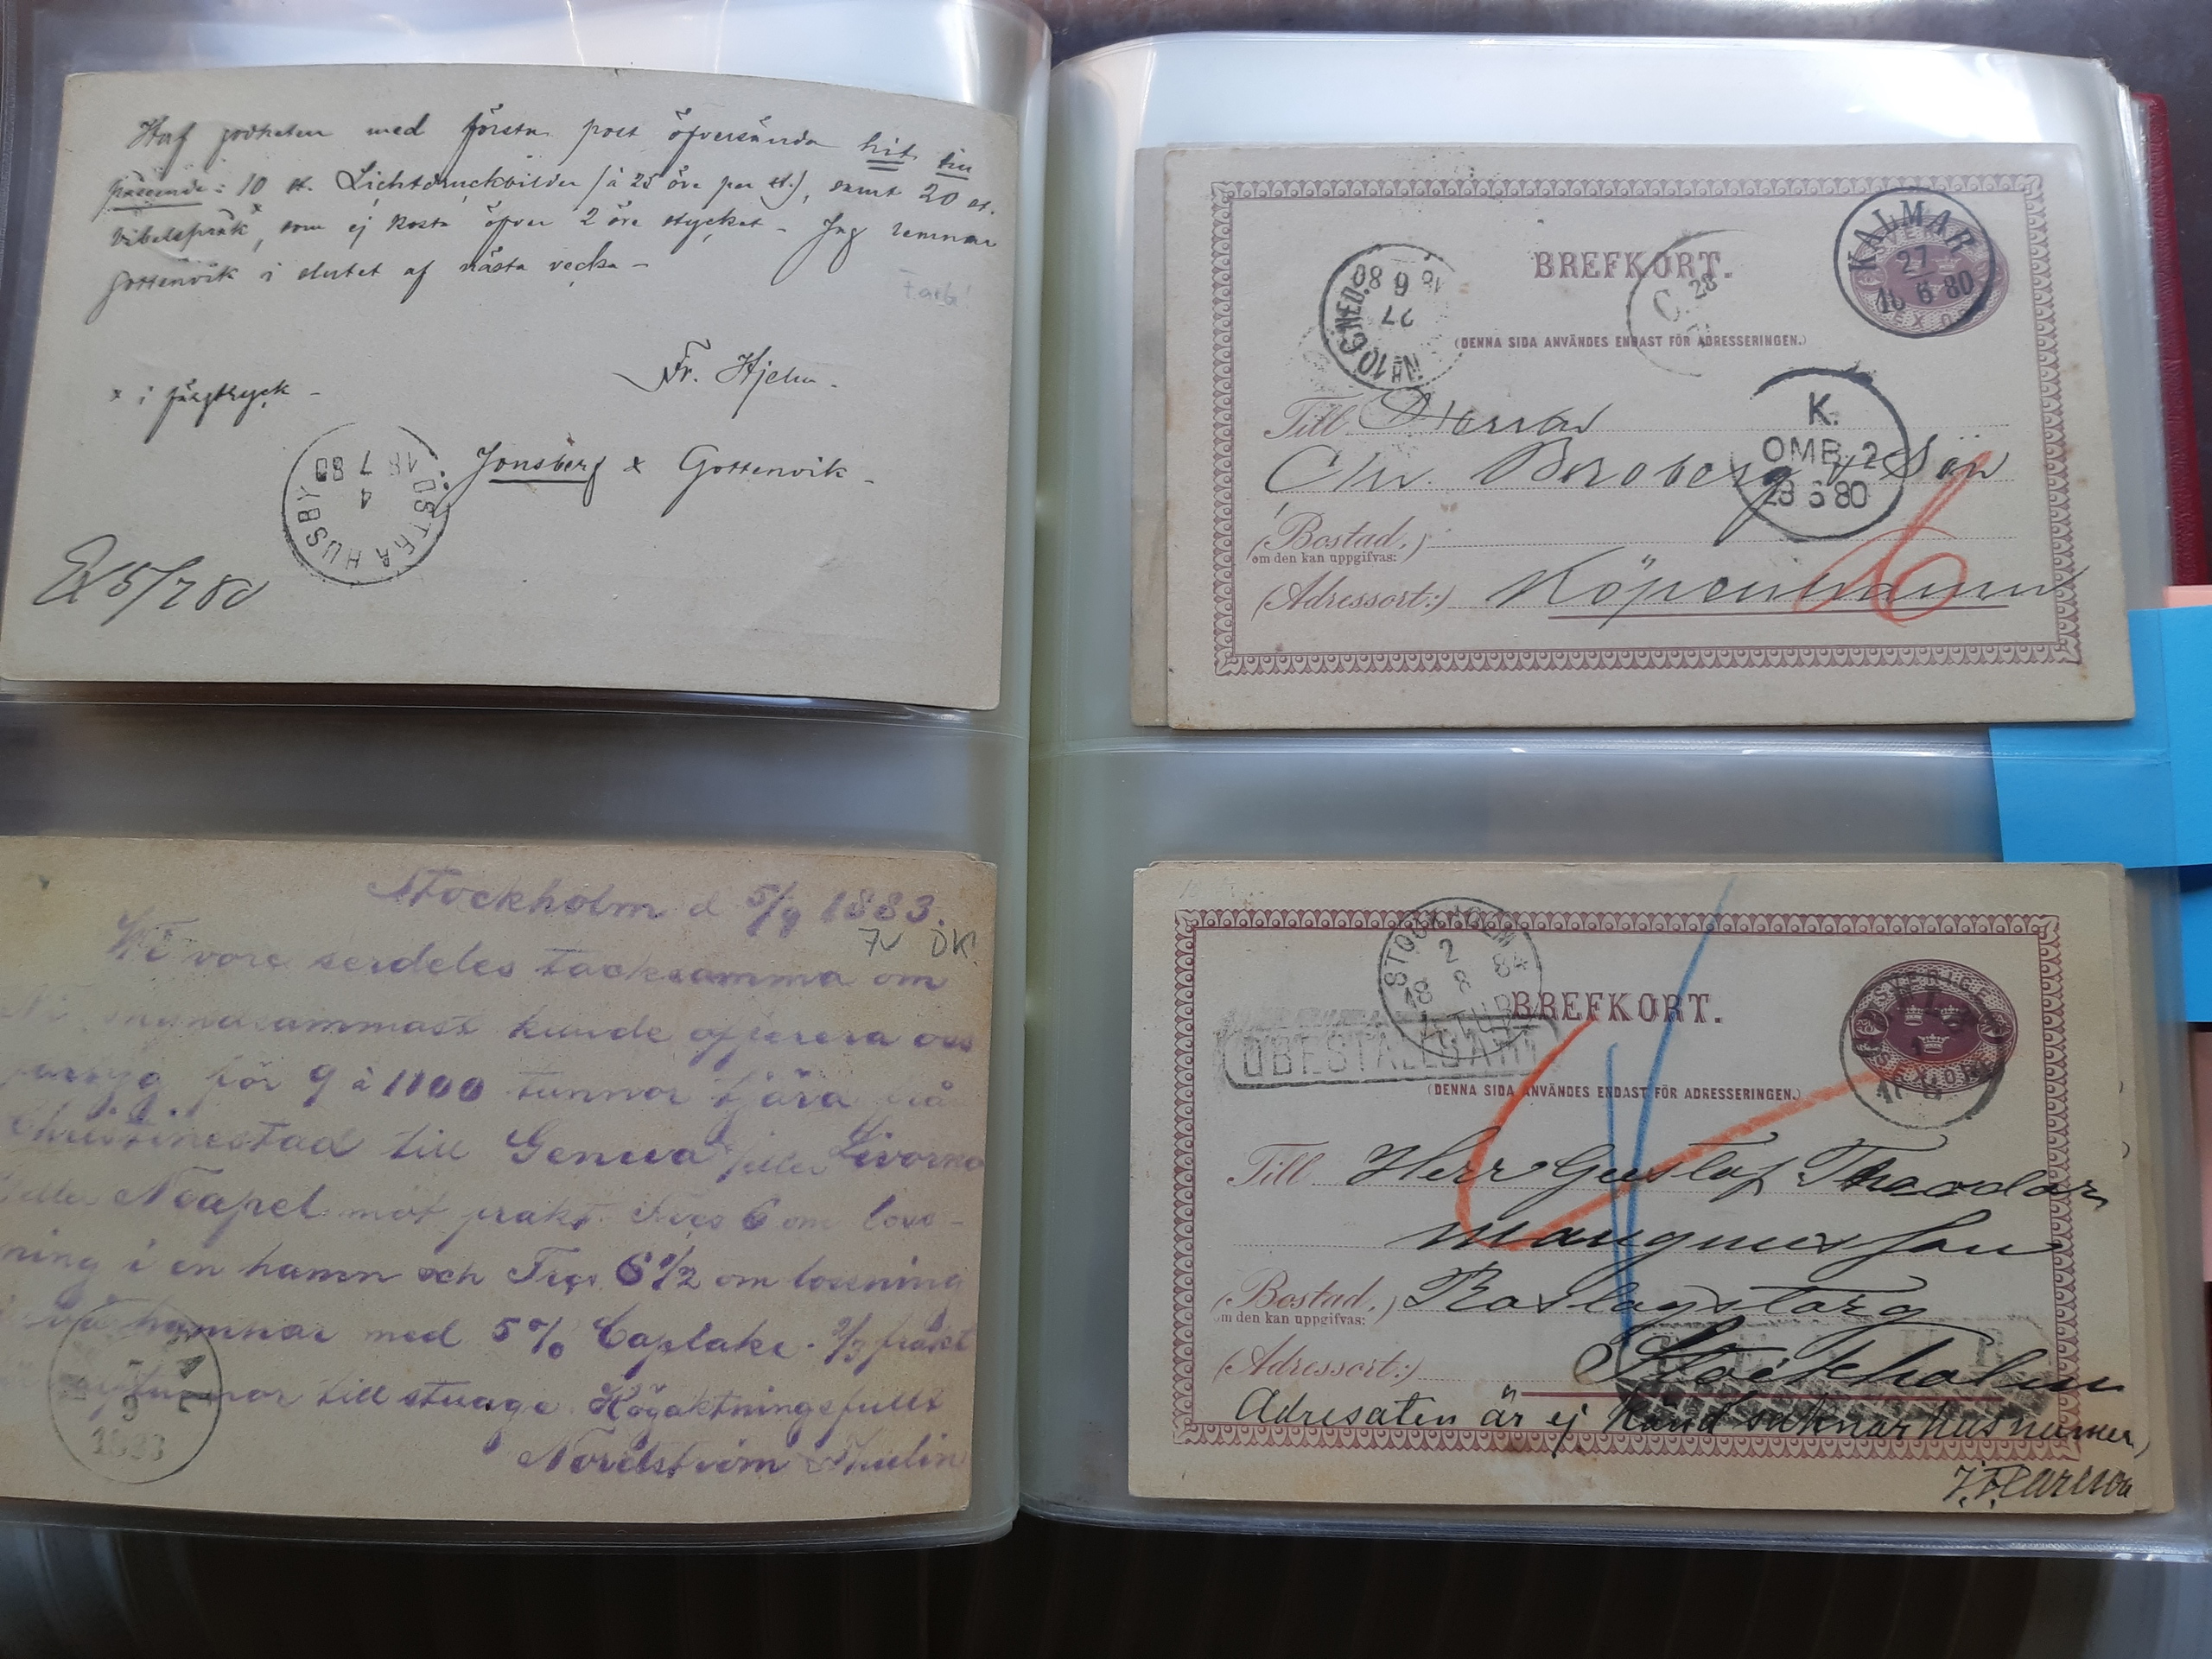 Haf godheten med första post öfversända hit till
påseende: 10 st. Lichtdruckbilder (à 25 öre per st.), samt 20 st.
bibelspråk x, som ej kosta öfver 2 öre stycket - Jag lemnar
Gottenvik i slutet af nästa vecka -
Fr. Hjelm.
x i färgtryck -
Jonsberg x Gottenvik -
ÖSTRA HUSBY
4
18 7 80
5/7 80
Stockholm d 5/9 1883.
Vi vore serdeles tacksamma om
Ni kunde offerera oss
för 9 à 1100 tunnor tjära från
Christinestad till Genua eller Livorno
eller Neapel mot frakt Frcs 6 om loss-
ning i en hamn och Frcs 6 1/2 om lossning
i två hamnar med 5% Caplake. 2/3 frakt
till stuage. Högaktningsfullt
Nordström & Thulin
9
1883
KALMAR
27
18 6 80
BREFKORT.
(DENNA SIDA ANVÄNDES ENDAST FÖR ADRESSERINGEN.)
Nä 10 G. NED.
27
18 6 80
K.
OMB. 2
28 6 80
Till Herrar
Chr. Broberg & Sön
(Bostad,)
om den kan uppgifvas:
(Adressort:) Köpenhamn
6
STOCKHOLM
2
18 8 84
BREFKORT.
OBESTÄLLBART
SVERIGE
SEX ÖRE
(DENNA SIDA ANVÄNDES ENDAST FÖR ADRESSERINGEN.)
Till Herr Gustaf Theodor
Maugnusson
(Bostad,) Roslagstorg
om den kan uppgifvas:
(Adressort:) Stockholm
Adresaten är ej känd saknar husnumer